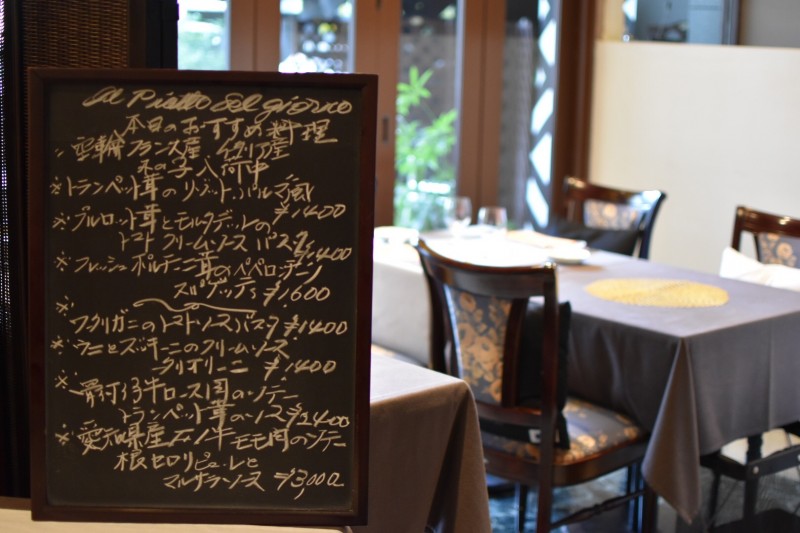 al Piatto del giorno
本日のおすすめ料理
空輸フランス産 イタリア産
木の子入荷中
※トランペット茸のリゾット、パルマ風
¥1400
※プルロット茸とモルタデッラの
トマトクリームソースパスタ ¥1400
※フレッシュポルチーニ茸のペペロンチーノ
スパゲッティ ¥1600
※
ワタリガニのトマトソースパスタ ¥1400
※ウニとズッキーニのクリームソース
タリオリーニ ¥1400
※骨付仔牛ロース肉のソテー
トランペット茸のソース ¥2400
※愛知県産 牛モモ肉のソテー
根セロリピューレと
マルサラソース ¥3,000